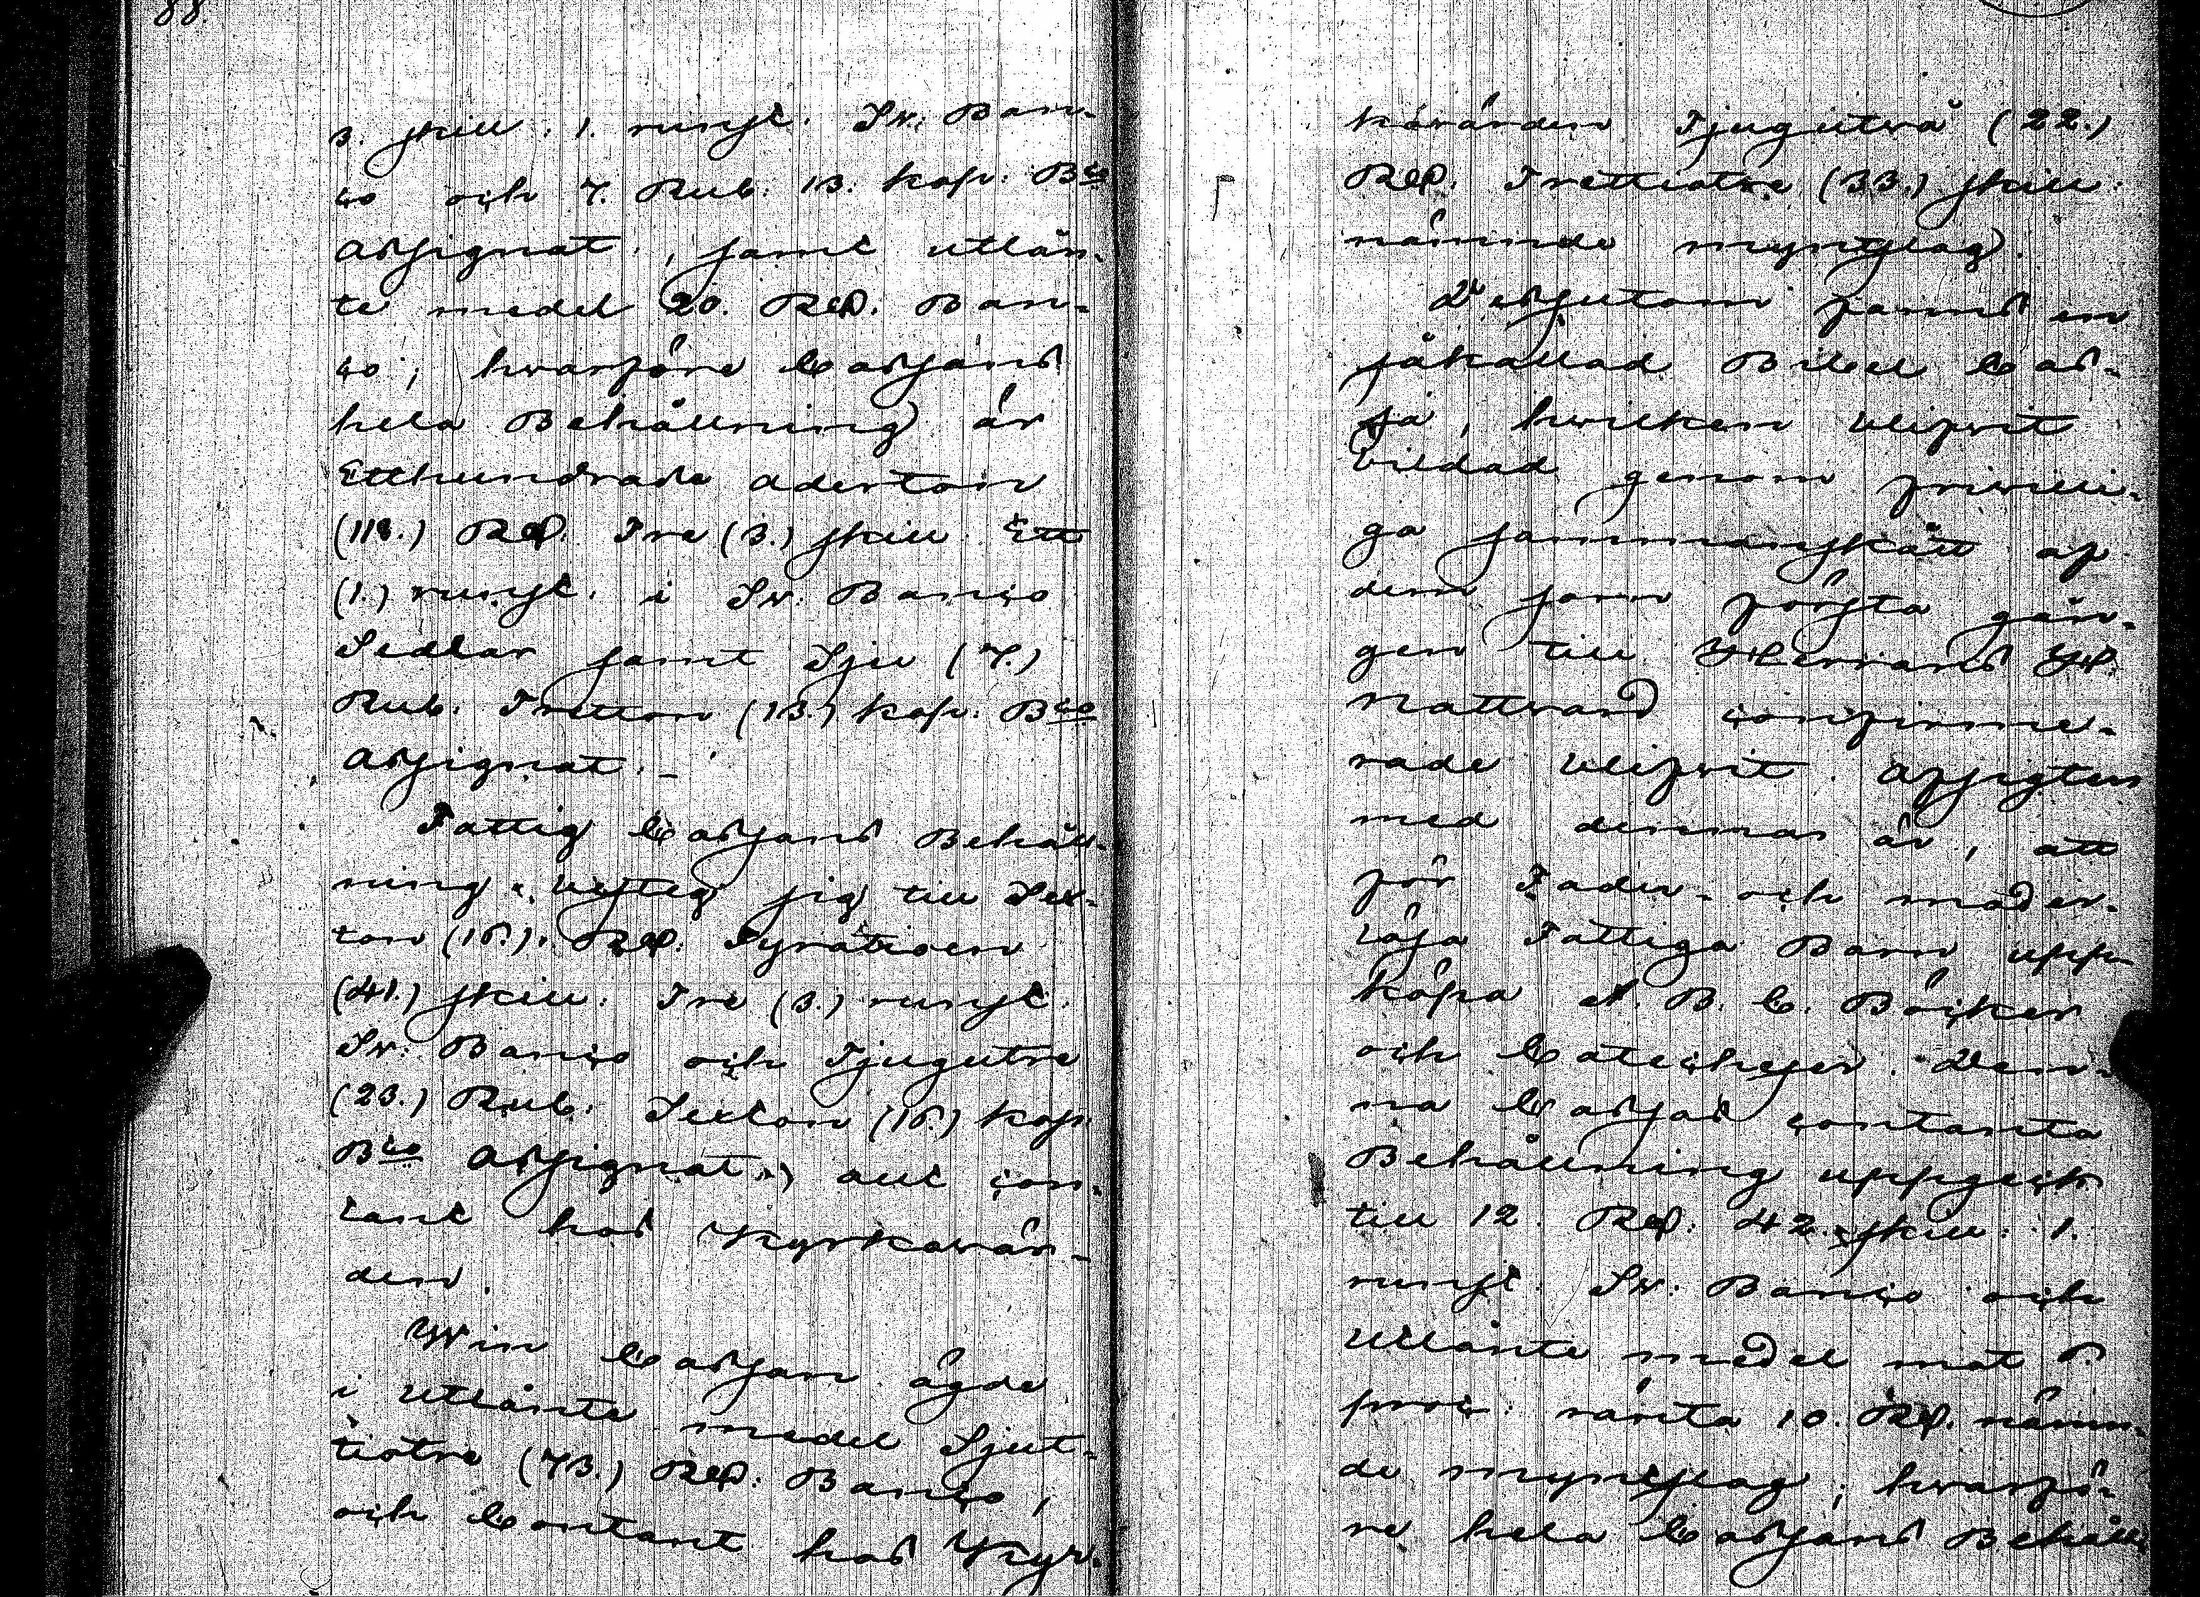 88
3. skill. 1. runst. Sv. Ban-
co och 7. Rub. 13. kop. Bco
Assignat., samt utlån-
te medel 20. Rd. Ban-
co; hvarföre Cassans
hela Behållning är
Etthundrade aderton
(118.) Rd. Tre (3.) skill. Ett
(1.) runst. i Sv. Banco
Sedlar samt Sju (7.)
Rub. Tretton (13.) kop. Bco
Assignat. -
Fattig Cassans Behåll-
ning besteg sig till Sex-
ton (16.) Rd. Fyratioen
(41.) skill. Tre (3.) runst.
Sv. Banco och Tjugutre
(23.) Rub. Sexton (16.) kop.
Bco Assignat., allt con-
tant hos Kyrkovär-
den.
Win Cassan ägde
i utlänte medel Sjut-
tiotre (73.) Rd. Banco,
och Contant hos Kyr-
kovärden Tjugutvå (22.)
Rd. Trettiotre (33.) skill.
nämnde myntslag.
Dessutom fanns en
såkallad Bibel Cas-
sa, hvilken blifvit
bildad genom frivilli-
ga sammanskått af
dem som första gån-
gen till Herrans H.
Nattvard confirme-
rade blifvit. Afsigten
med denna är, att
för Fader- och moder-
lösa Fattiga Barn upp-
köpa A. B. C. Böcker
och Catecheser. Den-
na Cassas contanta
Behållning uppgick
till 12. Rd. 42. skill. 1.
runst. Sv. Banco och
utlånte medel mot 6.
proc. ränta 10. Rd. nämn-
de myntslag; hvarfö-
re hela Cassans Behåll-